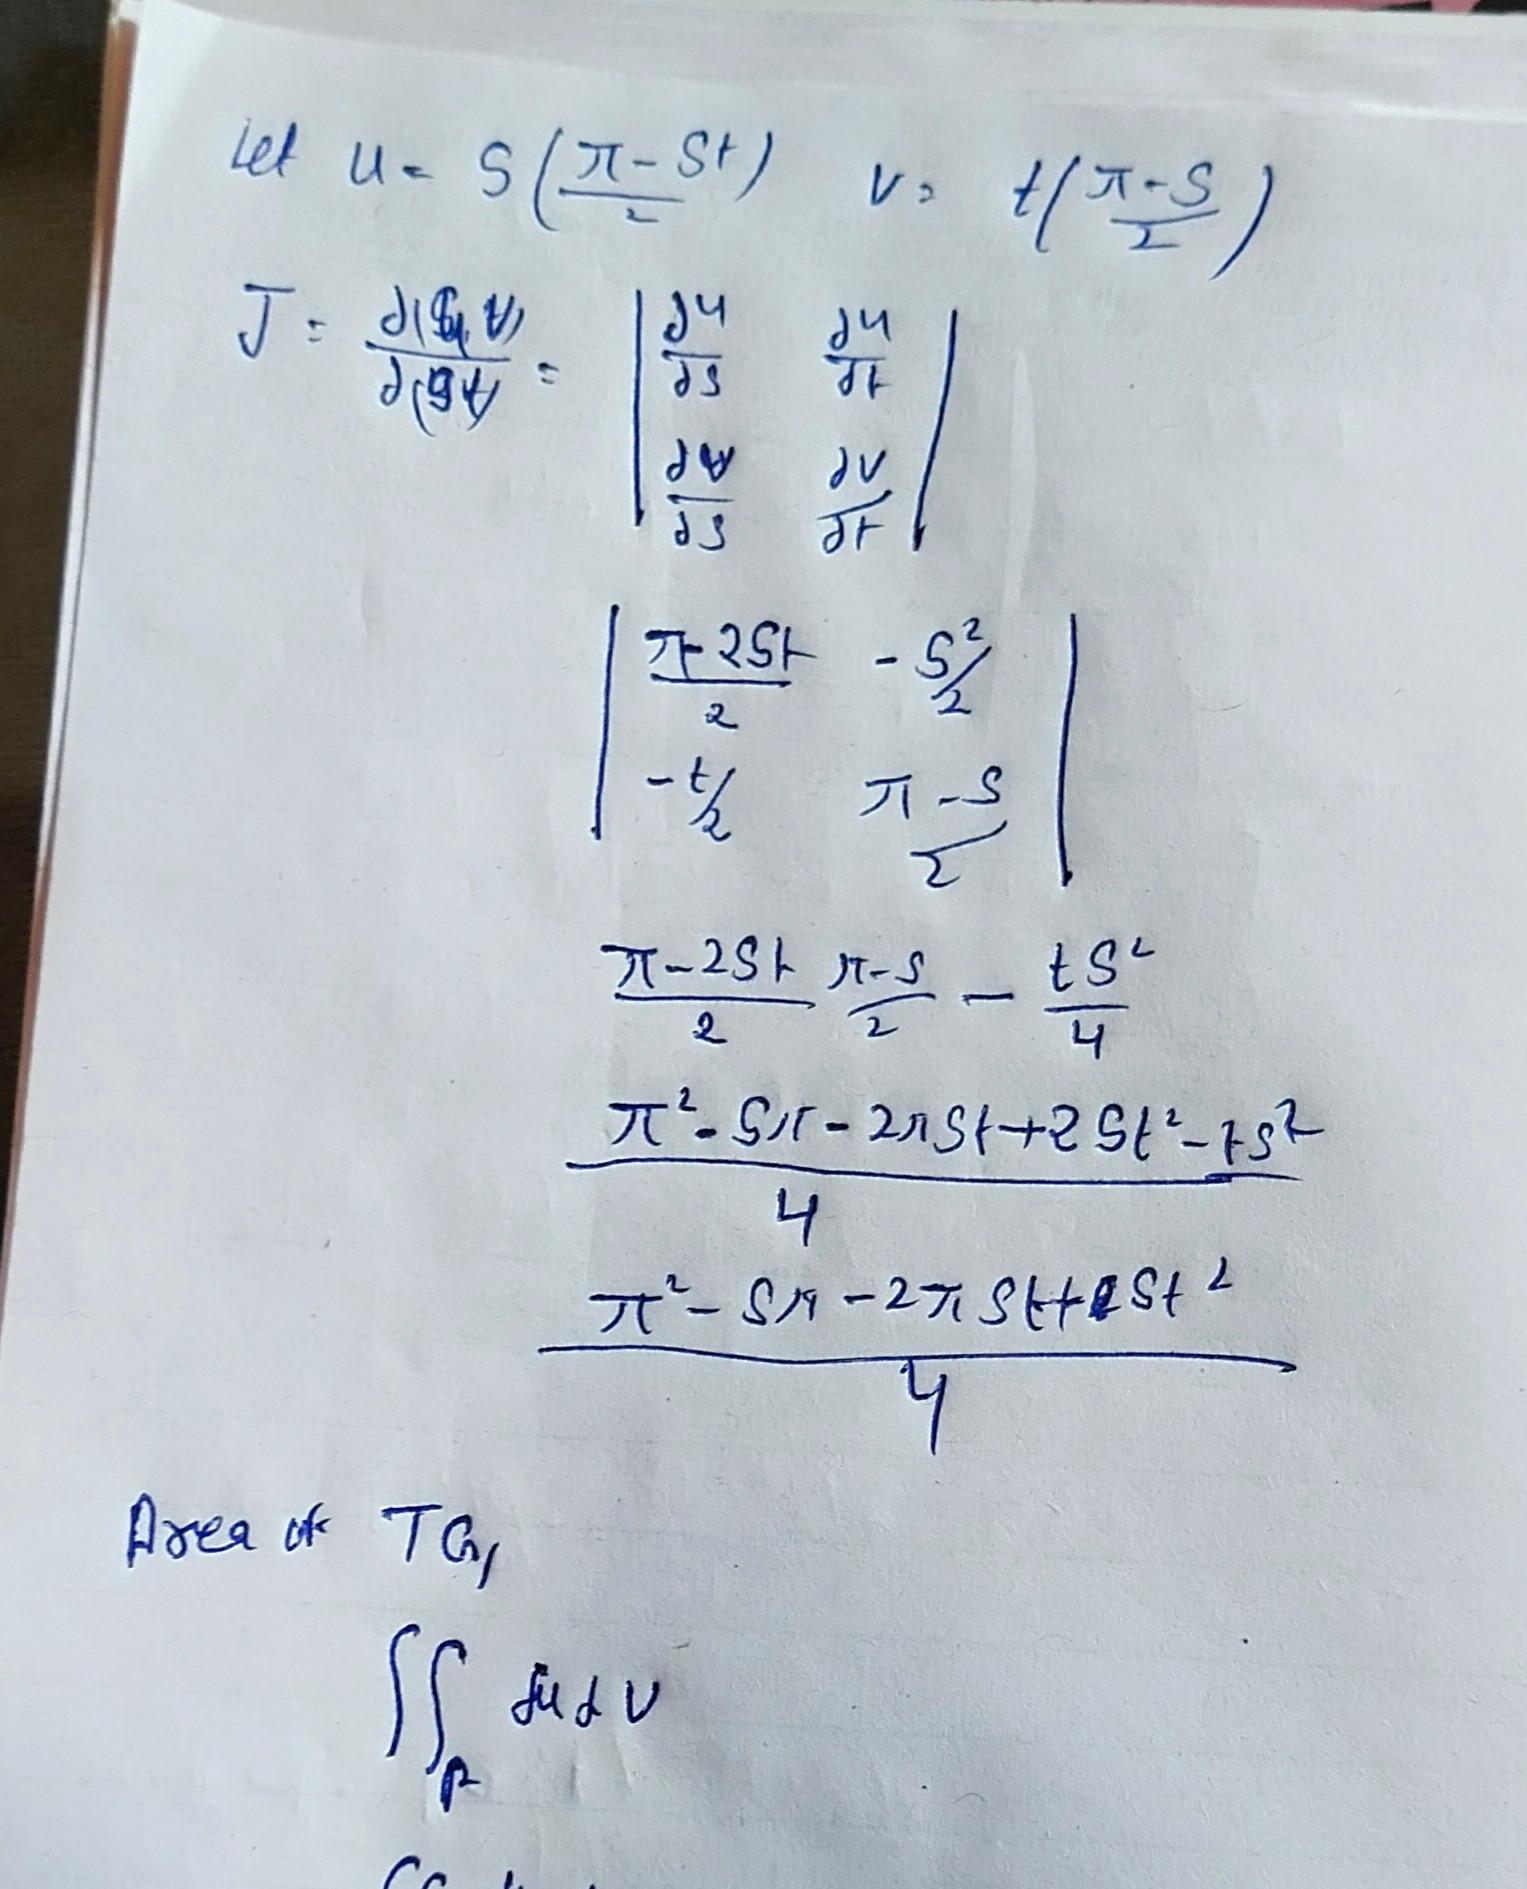 Let u = S(π - St / 2) v = t(π - S / 2)
J = ∂(u, v) / ∂(s, t) = | ∂u/∂s ∂u/∂t |
| ∂v/∂s ∂v/∂t |
| π-2St / 2 -S²/2 |
| -t/2 π-S / 2 |
π-2St / 2 π-S / 2 - tS² / 4
π² - Sπ - 2πSt + 2St² - tS² / 4
π² - Sπ - 2πSt + St² / 4
Area of TG,
∬R du dv